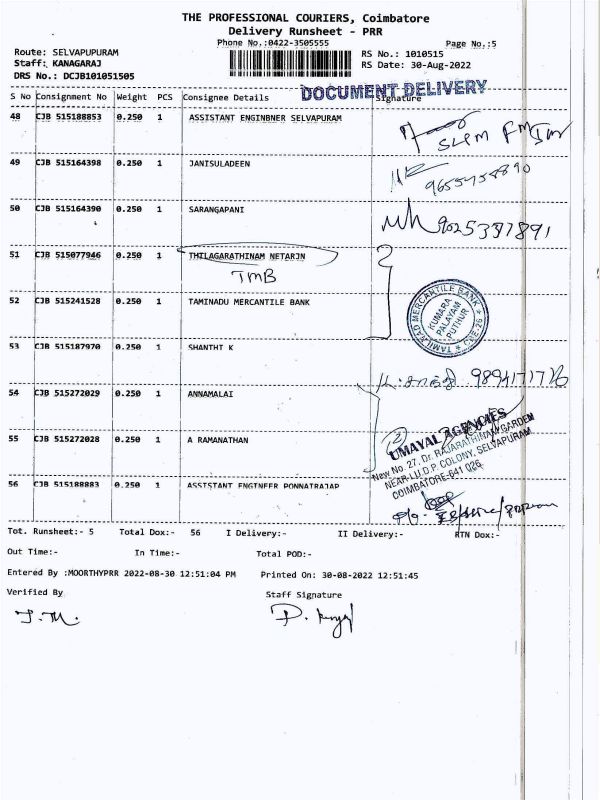 THE PROFESSIONAL COURIERS, Coimbatore
Delivery Runsheet - PRR
Phone No.:0422-3505555
Page No.:5
Route: SELVAPUPURAM
RS No.: 1010515
Staff: KANAGARAJ
RS Date: 30-Aug-2022
DRS No.: DCJB101051505
DOCUMENT DELIVERY
S No Consignment No Weight PCS Consignee Details Signature
48 CJB 515188853 0.250 1 ASSISTANT ENGINBNER SELVAPURAM
49 CJB 515164398 0.250 1 JANISULADEEN
9655454890
50 CJB 515164390 0.250 1 SARANGAPANI
9025337891
51 CJB 515077946 0.250 1 THILAGARATHINAM NETARJN
TMB
52 CJB 515241528 0.250 1 TAMINADU MERCANTILE BANK
TAMILNAD MERCANTILE BANK
KUMARA
PALAYAM
PUTHUR
CBE-26
53 CJB 515187970 0.250 1 SHANTHT K
54 CJB 515272029 0.250 1 ANNAMALAI
2
UMAYAL AGENCIES
New No. 27, Dr. RAJARATHINAM GARDEN
NEAR L.I.D.P COLONY, SELVAPURAM,
COIMBATORE-641 026.
55 CJB 515272028 0.250 1 A RAMANATHAN
56 CJB 515188883 0.250 1 ASSTSTANT ENGTNFER PONNATRAJAP
Tot. Runsheet:- 5 Total Dox:- 56 I Delivery:- II Delivery:- RTN Dox:-
Out Time:- In Time:- Total POD:-
Entered By :MOORTHYPRR 2022-08-30 12:51:04 PM Printed On: 30-08-2022 12:51:45
Verified By
Staff Signature